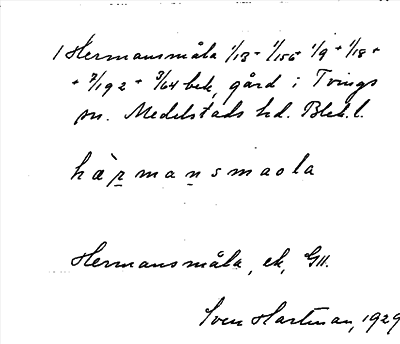 1 Hermansmåla 1/13 + 1/156 + 1/9 + 1/18 +
+ 7/192 + 3/64 bek, gård i Tvings
sn. Medelstads hd. Blek. l.
hæ̀r̲man̲smaola
Hermansmåla, ek, GII.
Sven Hartman, 1929